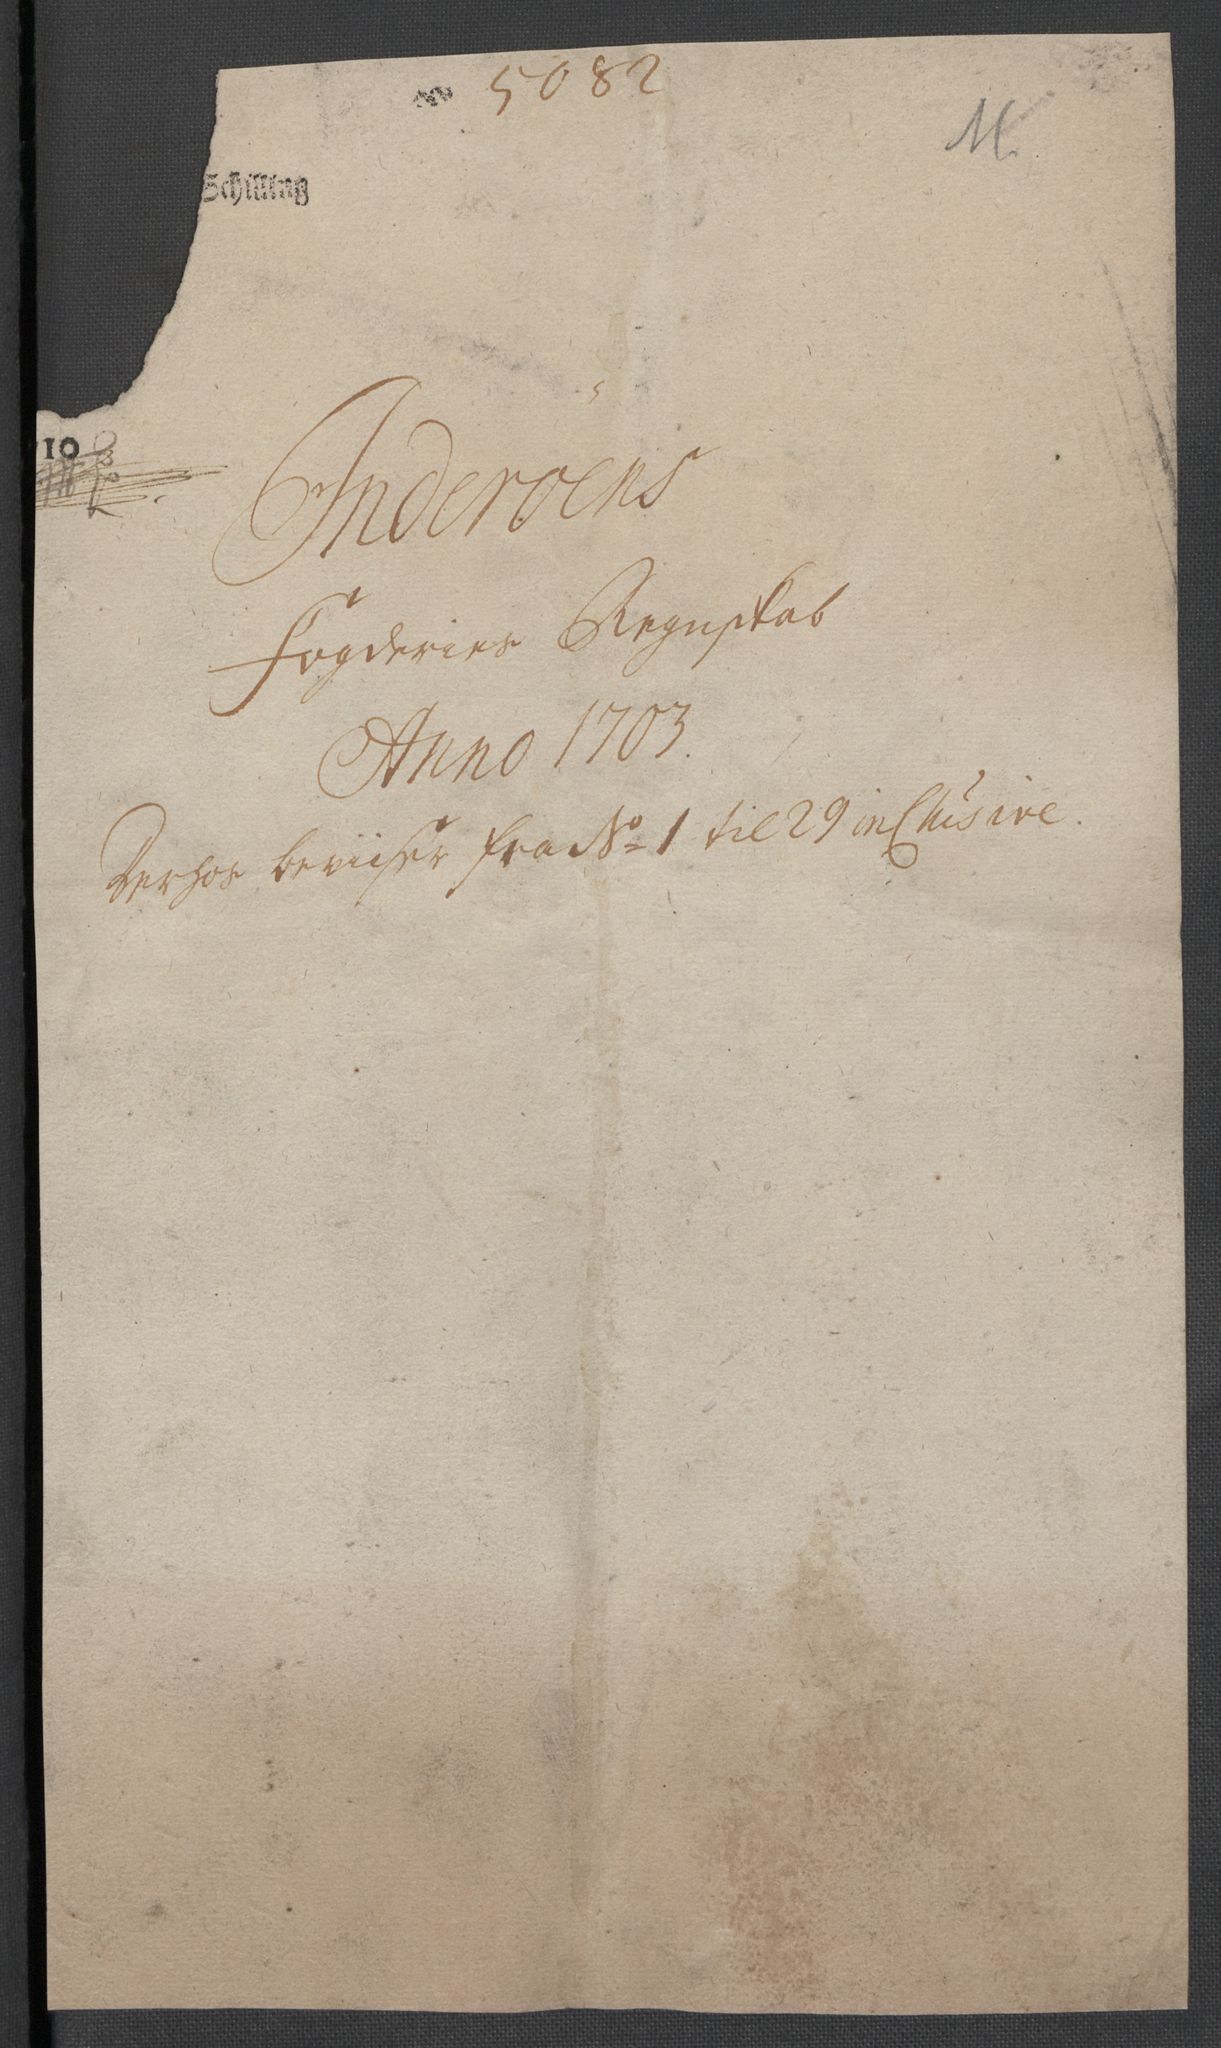 5082
M.
Schilling
10
Inderöens
Fogderies Regnskab
Anno 1703.
Derhos beviiser fra No 1 til 29 inclusive.